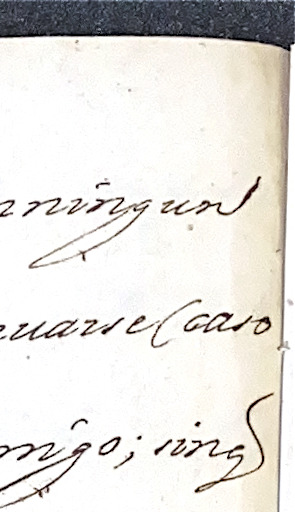 nningun
uarse (caso
migo; sinq